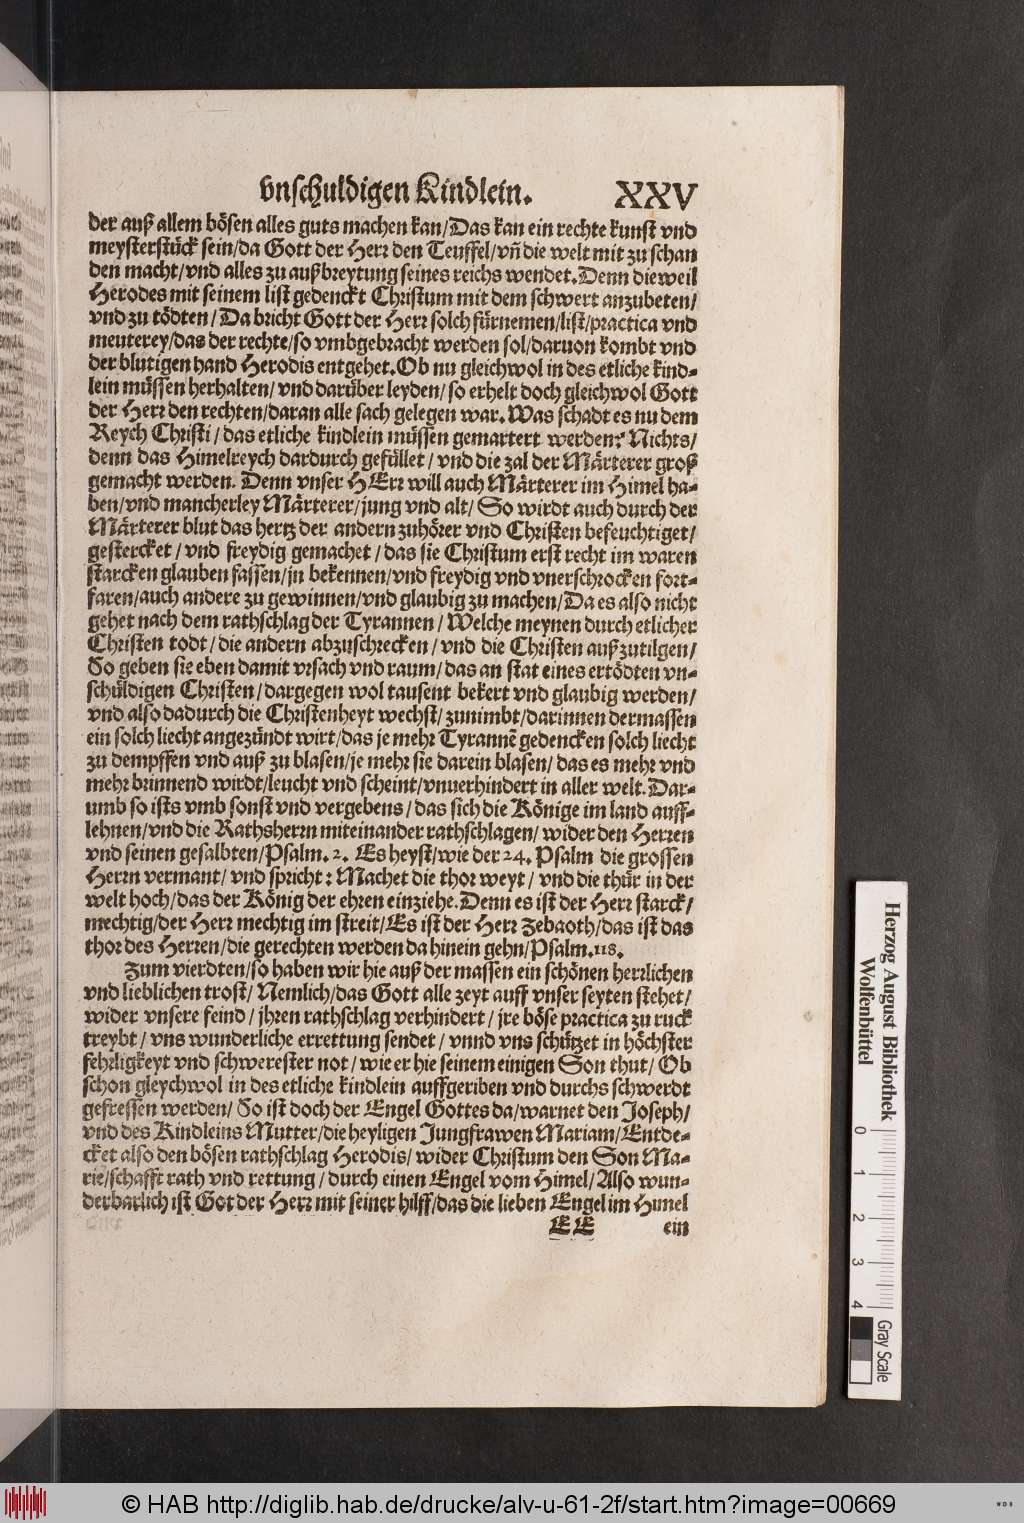 vnschuldigen Kindlein. XXV
der auß allem bösen alles guts machen kan/Das kan ein rechte kunst vnd
meysterstück sein/da Gott der Herr den Teuffel/vñ die welt mit zu schan
den macht/vnd alles zu außbreytung seines reichs wendet. Denn dieweil
Herodes mit seinem list gedenckt Christum mit dem schwert anzubeten/
vnd zu tödten/Da bricht Gott der Herr solch fürnemen/list/practica vnd
meuterey/das der rechte/so vmbgebracht werden sol/daruon kombt vnd
der blutigen hand Herodis entgehet. Ob nu gleichwol in des etliche kind-
lein müssen herhalten/vnd darüber leyden/so erhelt doch gleichwol Gott
der Herr den rechten/daran alle sach gelegen war. Was schadt es nu dem
Reych Christi/das etliche kindlein müssen gemartert werden? Nichts/
denn das Himelreych dardurch gefüllet/vnd die zal der Märterer groß
gemacht werden. Denn vnser HErr will auch Märterer im Himel ha-
ben/vnd mancherley Märterer/jung vnd alt/So wirdt auch durch der
Märterer blut das hertz der andern zuhörer vnd Christen befeuchtiget/
gestercket/vnd freydig gemachet/das sie Christum erst recht im waren
starcken glauben fassen/jn bekennen/vnd freydig vnd vnerschrocken fort-
faren/auch andere zu gewinnen/vnd glaubig zu machen/Da es also nicht
gehet nach dem rathschlag der Tyrannen/Welche meynen durch etlicher
Christen todt/die andern abzuschrecken/vnd die Christen außzutilgen/
So geben sie eben damit vrsach vnd raum/das an stat eines ertödten vn-
schüldigen Christen/dargegen wol tausent bekert vnd glaubig werden/
vnd also dadurch die Christenheyt wechst/zunimbt/darinnen dermassen
ein solch liecht angezündt wirt/das je mehr Tyrannē gedencken solch liecht
zu dempffen vnd auß zu blasen/je mehr sie darein blasen/das es mehr vnd
mehr brinnend wirdt/leucht vnd scheint/vnuerhindert in aller welt. Dar-
umb so ists vmb sonst vnd vergebens/das sich die Könige im land auff-
lehnen/vnd die Rathsherrn miteinander rathschlagen/wider den Herren
vnd seinen gesalbten/Psalm. 2. Es heyst/wie der 24. Psalm die grossen
Herrn vermant/vnd spricht: Machet die thor weyt/vnd die thür in der
welt hoch/das der König der ehren einziehe. Denn es ist der Herr starck/
mechtig/der Herr mechtig im streit/Es ist der Herr Zebaoth/das ist das
thor des Herren/die gerechten werden da hinein gehn/Psalm. 118.
Zum vierdten/so haben wir hie auß der massen ein schönen herrlichen
vnd lieblichen trost/Nemlich/das Gott alle zeyt auff vnser seyten stehet/
wider vnsere feind/jhren rathschlag verhindert/jre böse practica zu ruck
treybt/vns wunderliche errettung sendet/vnnd vns schützet in höchster
fehrligkeyt vnd schwerester not/wie er hie seinem einigen Son thut/Ob
schon gleychwol in des etliche kindlein auffgeriben vnd durchs schwerdt
gefressen werden/So ist doch der Engel Gottes da/warnet den Joseph/
vnd des Kindleins Mutter/die heyligen Jungfrawen Mariam/Entde-
cket also den bösen rathschlag Herodis/wider Christum den Son Ma-
rie/schafft rath vnd rettung/durch einen Engel vom Himel/Also wun-
derbarlich ist Got der Herr mit seiner hilff/das die lieben Engel im Himel
EE ein
Herzog August Bibliothek
Wolfenbüttel
0 1 2 3 4
Gray Scale
© HAB http://diglib.hab.de/drucke/alv-u-61-2f/start.htm?image=00669